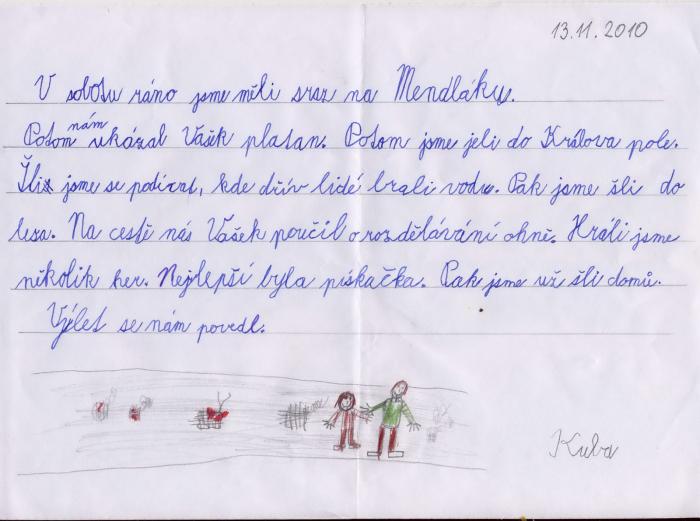 13.11.2010
V sobotu ráno jsme měli sraz na Mendláku.
Potom nám ukázal Vašek platan. Potom jsme jeli do Králova pole.
Šli jsme se podívat, kde dřív lidé brali vodu. Pak jsme šli do
lesa. Na cestě nás Vašek poučil o rozdělávání ohně. Hráli jsme
několik her. Nejlepší byla pískačka. Pak jsme už šli domů.
Výlet se nám povedl.
Kuba